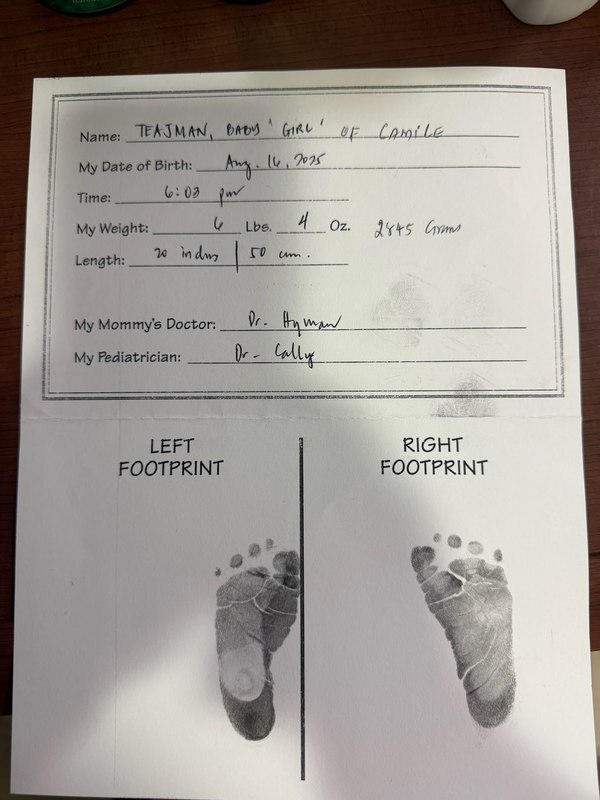 Name: TEAJMAN, BABY 'GIRL' OF CAMILE
My Date of Birth: Aug. 16, 2025
Time: 6:03 pm
My Weight: 6 Lbs. 4 Oz. 2845 Grams
Length: 20 inches | 50 cm.
My Mommy's Doctor: Dr. Hyman
My Pediatrician: Dr. Cally
LEFT FOOTPRINT
RIGHT FOOTPRINT